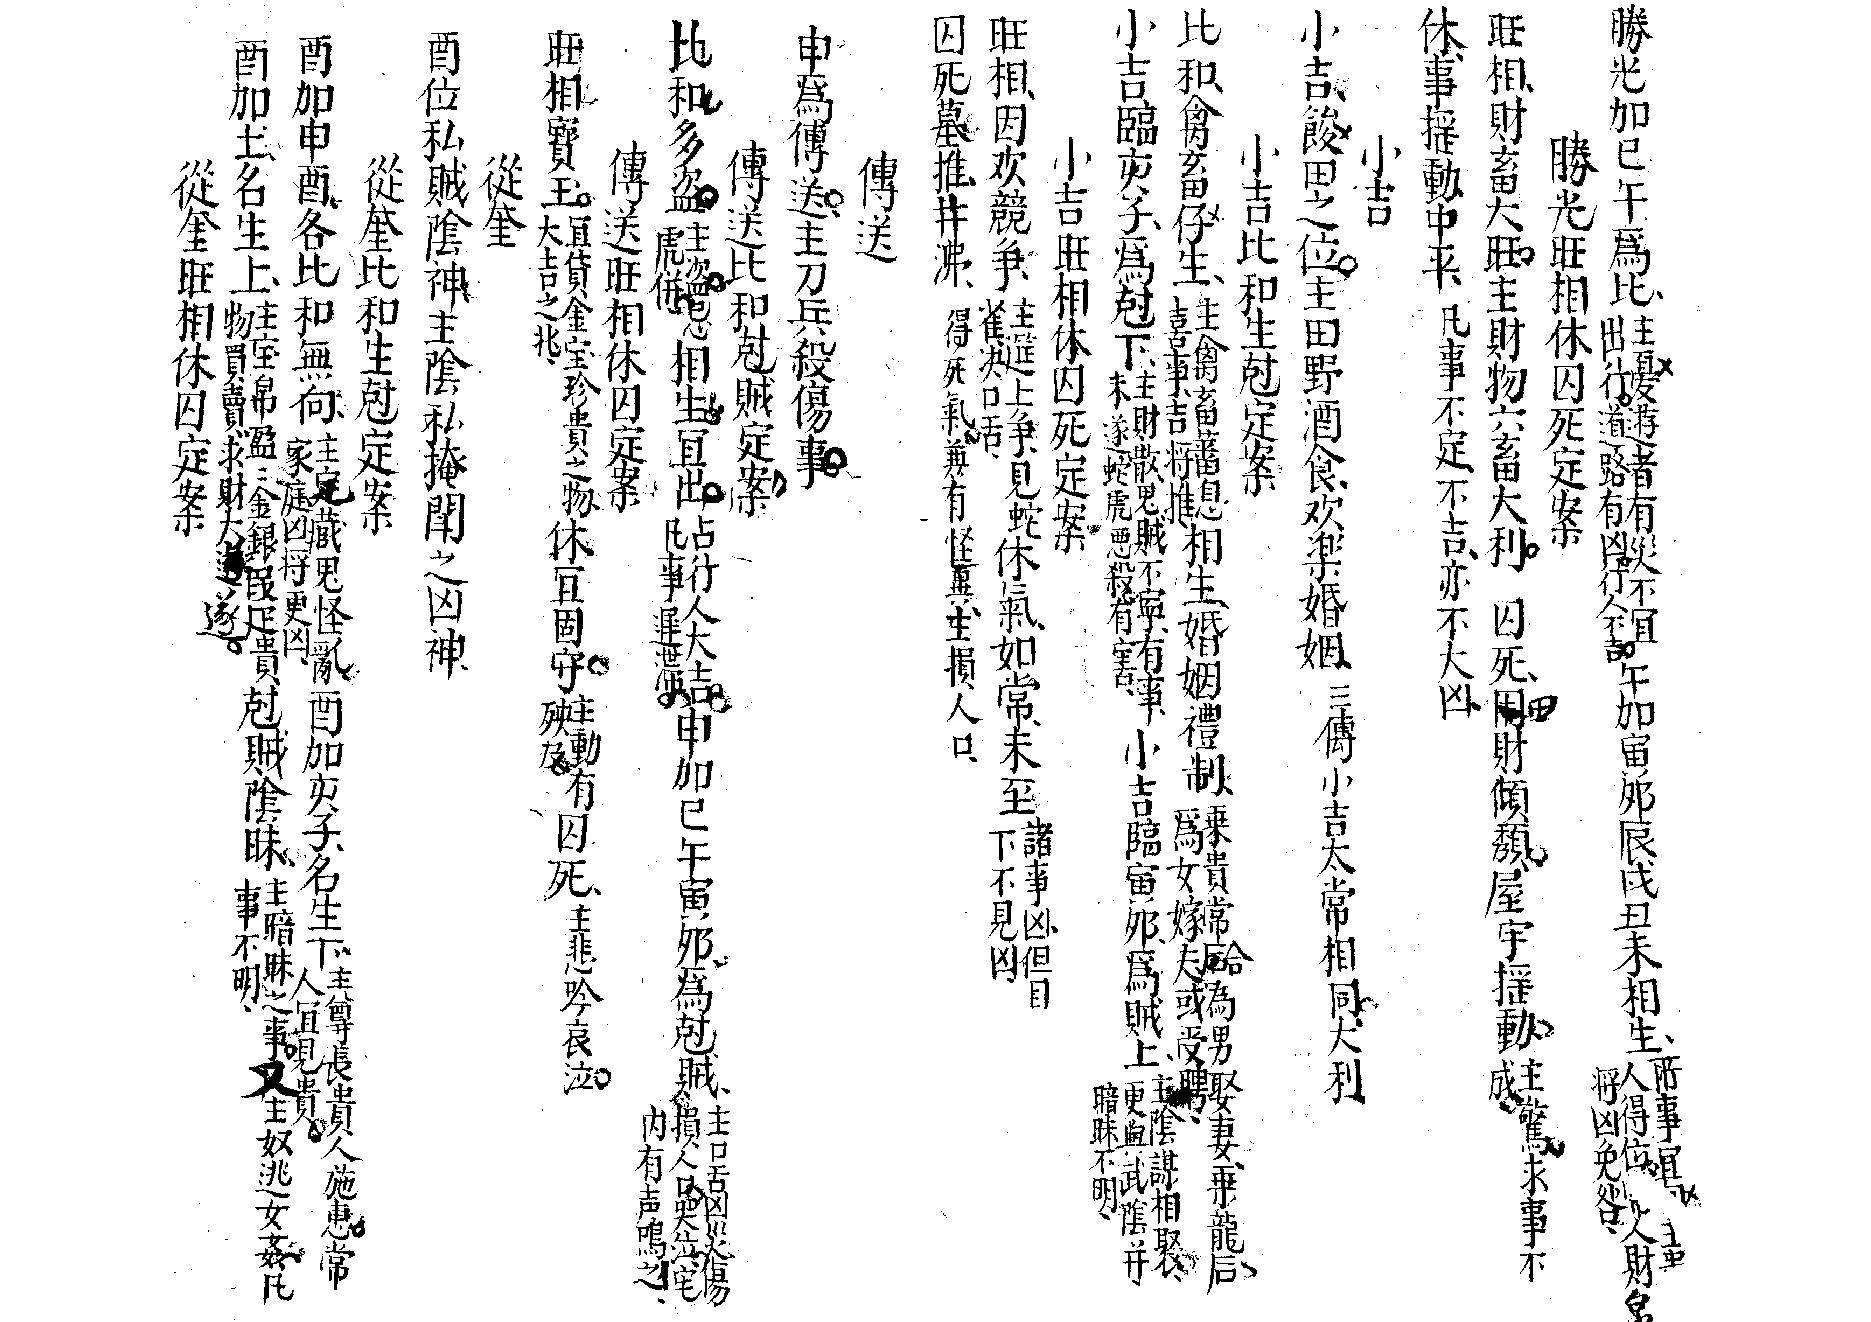 勝光加巳午爲比、主憂游者有災不宜出行道路有凶行人不吉午加寅夘辰戌丑未相生、所事宜人得位將凶免咎
勝光旺相休囚死定案
旺相、財畜大旺主財物六畜大利 囚死、田財傾頹、屋宇揺動主驚求事不成、
休、事揺動中平、凡事不定、不吉、亦不大凶、
小吉
小吉、餕田之位主田野酒食、欢楽婚姻、三傳小吉太常相同、大利
小吉比和生尅定案
比和、禽畜仔生、主禽畜蕃息喜事吉將推相生、婚姻禮制、乗貴常后合為男娶妻、乗龍后爲女嫁夫或受聘
小吉臨亥子、爲尅下、主財散鬼賊不寧、有事、未遂蛇虎惡殺有害、小吉臨寅夘、爲賊上、主陰謀相娶、更血武陰并暗昧不明、
小吉旺相休囚死定案
旺相、因欢競争、主筵上争、見蛇雀決口舌、休氣、如常、未至諸事凶、但目下不見凶
囚死墓推、井沸、得死氣、兼有怪異、主損人口、
傳送
申爲傳送、主刀兵殺傷事
傳送比和尅賊定案
比和多盗主盗賊虎併相生冝出占行人大吉凡事遲滯申加巳午寅夘、爲尅賊、主口舌凶災傷損人口哭泣宅内有声鳴之、
傳送旺相休囚定案
旺相寶玉冝貨金宝珍貴之物大吉之兆、休冝固守主動有殃及囚死、主悲吟哀泣
從奎
酉位私賊陰神、主陰私掩閉之凶神、
從奎比和生尅定案
酉加申酉、各比和無向、主宅藏鬼怪亂家庭凶將更凶、酉加亥子、名生下、主尊長貴人施惠常人冝見貴、
酉加土、名生上、主宝帛盈〻金銀叚疋貴物買賣求財大遂尅賊陰昧、主暗昧之事又主奴逃女姦凡事不明、
從奎旺相休囚定案